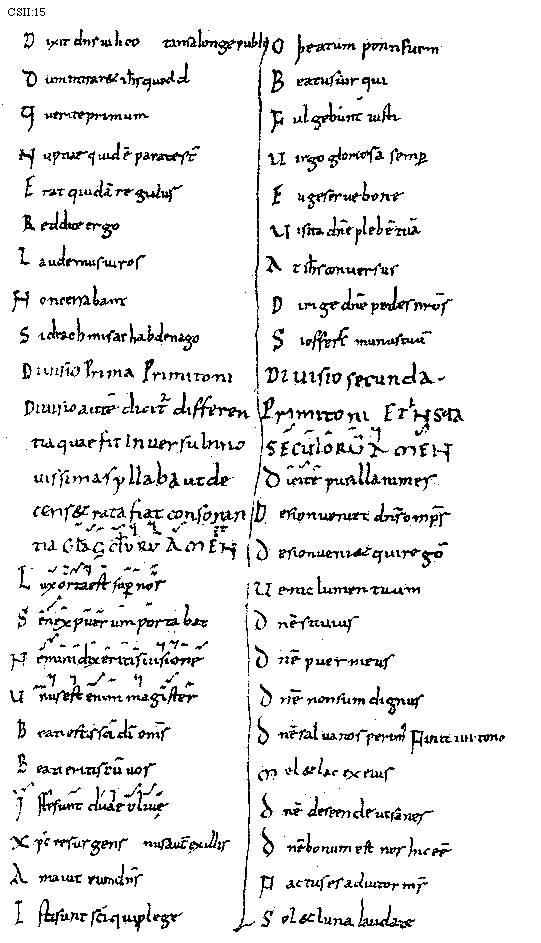 CSII:15
D ixit dns uilico
D um intraret ihs qued d
Q uerite primum
N uptiae quidē paratesr̄
E rat quidā regulus
R eddite ergo
L audemus uiros
N on cenabant
S idrach misac habdenago
Diuisio Prima Primitoni
Diuisio autē dicit differen
tia quae fit In uersu In no
uissima syllaba ut de
cens & rata fiat consonan
tia AMEN
L ux orta est sup nos
S enex puerum portabat
N emini dixeritis uisionē
U nus est enim magister
B eati estis sc̄i dī om̄s
B eati eritis cū uos
I sti sunt duae oliuę
X p̄c resurgens
A maiut eum dn̄s
I sti sunt sc̄i qui plege
O beatum pontificem
B eatus uir qui
F ulgebunt iusti
U irgo gloriosa semp
E uge serue bone
U isita dn̄e plebē tuā
A t ihs conuersus
D irige dn̄e pedes mr̄os
S i offers munus tuū
Diuisio secunda
Primitoni
SECULORŪ AMEN
D icite pusillanimes
D e sion ueniet dn̄s omp̄s
D e sion ueniet qui regō
U eni & lumen tuum
D nē si tu uis
D nē puer meus
D nē non sum dignus
D nē salua nos perimꝰ
M el & lac ex eius
D nē descende ut sanes
D nē bonum est nos hic eē
F actus es adiutor mr̄
S ol & luna laudate